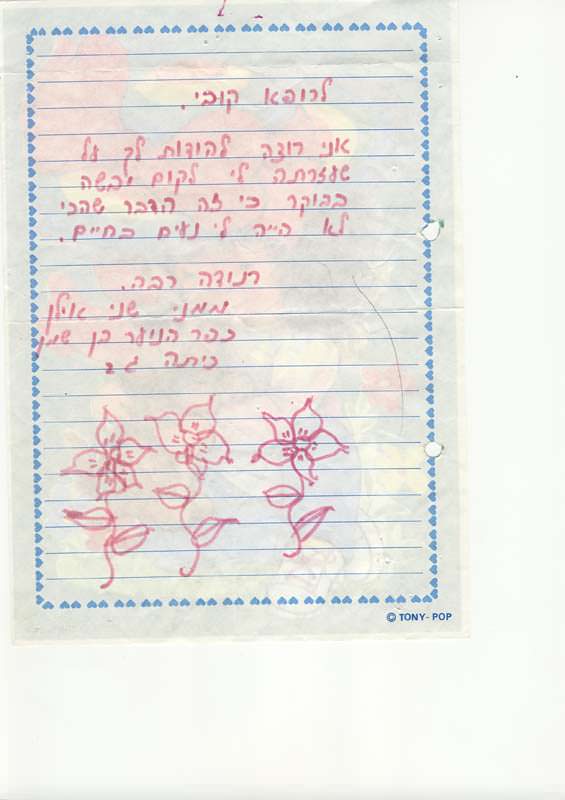 לרופא קובי.
אני רוצה להודות לך על
שעזרתה לי לקום יבשה
בבוקר כי זה הדבר שהכי
לא הייה לי נעים בחיים.
תודה רבה.
ממני שני אילן
כפר הנוער בן שמן
כיתה ג 2
© TONY-POP